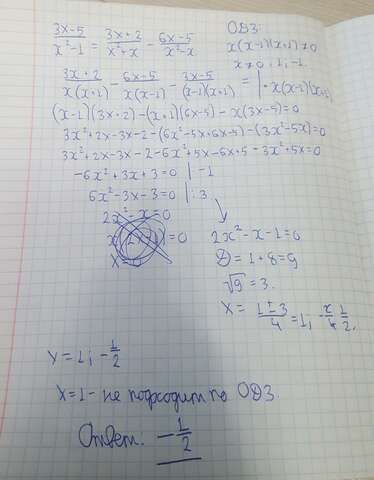 (3x-5)/(x²-1) = (3x+2)/(x²+x) - (6x-5)/(x²-x)
ОДЗ:
x(x-1)(x+1)≠0
x≠0; 1; -1.
(3x+2)/(x(x+1)) - (6x-5)/(x(x-1)) - (3x-5)/(x-1)(x+1) = |·x(x-1)(x+1)
(x-1)(3x+2)-(x+1)(6x-5)-x(3x-5)=0
3x²+2x-3x-2-(6x²-5x+6x-5)-(3x²-5x)=0
3x²+2x-3x-2-6x²+5x-6x+5-3x²+5x=0
-6x²+3x+3=0 |·-1
6x²-3x-3=0 |:3
2x²-x=0
2x²-x-1=0
D=1+8=9
√9=3.
x=(1±3)/4=1; -1/2.
x=1; -1/2
x=1- не подходит по ОДЗ.
Ответ: -1/2